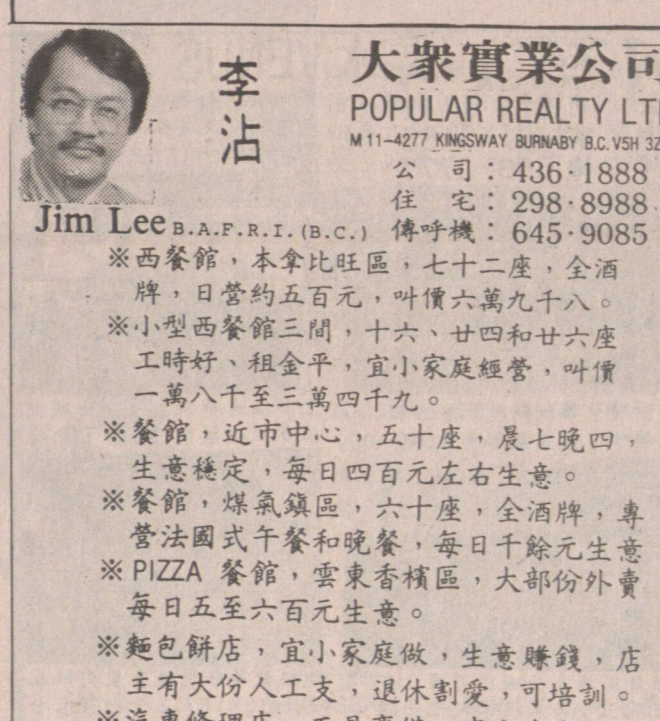 李沾
大衆實業公司
POPULAR REALTY LT
M 11-4277 KINGSWAY BURNABY B.C. V5H 3Z
公 司：436·1888
住 宅：298·8988
Jim Lee B.A.F.R.I. (B.C.) 傳呼機：645·9085
※西餐館，本拿比旺區，七十二座，全酒
牌，日營約五百元，叫價六萬九千八。
※小型西餐館三間，十六、廿四和廿六座
工時好、租金平，宜小家庭經營，叫價
一萬八千至三萬四千九。
※餐館，近市中心，五十座，晨七晚四，
生意穩定，每日四百元左右生意。
※餐館，煤氣鎮區，六十座，全酒牌，專
營法國式午餐和晚餐，每日千餘元生意
※PIZZA 餐館，雲東香檳區，大部份外賣
每日五至六百元生意。
※麵包餅店，宜小家庭做，生意賺錢，店
主有大份人工支，退休割愛，可培訓。